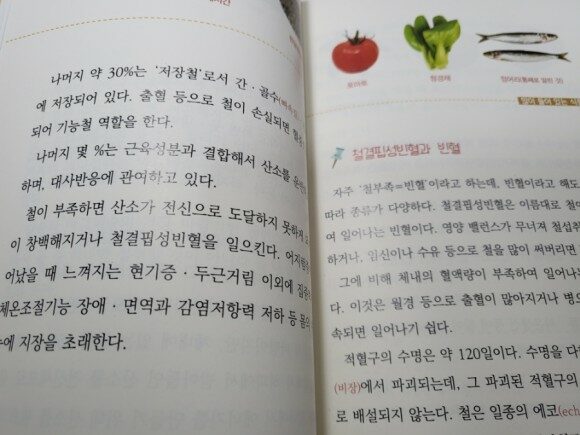 나머지 약 30%는 '저장철'로서 간·골수
에 저장되어 있다. 출혈 등으로 철이 손실되면
되어 기능철 역할을 한다.
나머지 몇 %는 근육성분과 결합해서 산소를
하며, 대사반응에 관여하고 있다.
철이 부족하면 산소가 전신으로 도달하지 못하게
이 창백해지거나 철결핍성빈혈을 일으킨다.
어났을 때 느껴지는 현기증·두근거림 이외에
체온조절기능 장애·면역과 감염저항력 저하 등
에 지장을 초래한다.
토마토
청경채
정어리(통째로 말린 것)
철결핍성빈혈과 빈혈
자주 '철부족=빈혈'이라고 하는데, 빈혈이라고 해도
따라 종류가 다양하다. 철결핍성빈혈은 이름대로 철이
여 일어나는 빈혈이다. 영양 밸런스가 무너져 철섭취
하거나, 임신이나 수유 등으로 철을 많이 써버리면
그에 비해 체내의 혈액량이 부족하여 일어나는
다. 이것은 월경 등으로 출혈이 많아지거나
속되면 일어나기 쉽다.
적혈구의 수명은 약 120일이다. 수명을 다
(비장)에서 파괴되는데, 그 파괴된 적혈구의
로 배설되지 않는다. 철은 일종의 에코(ech